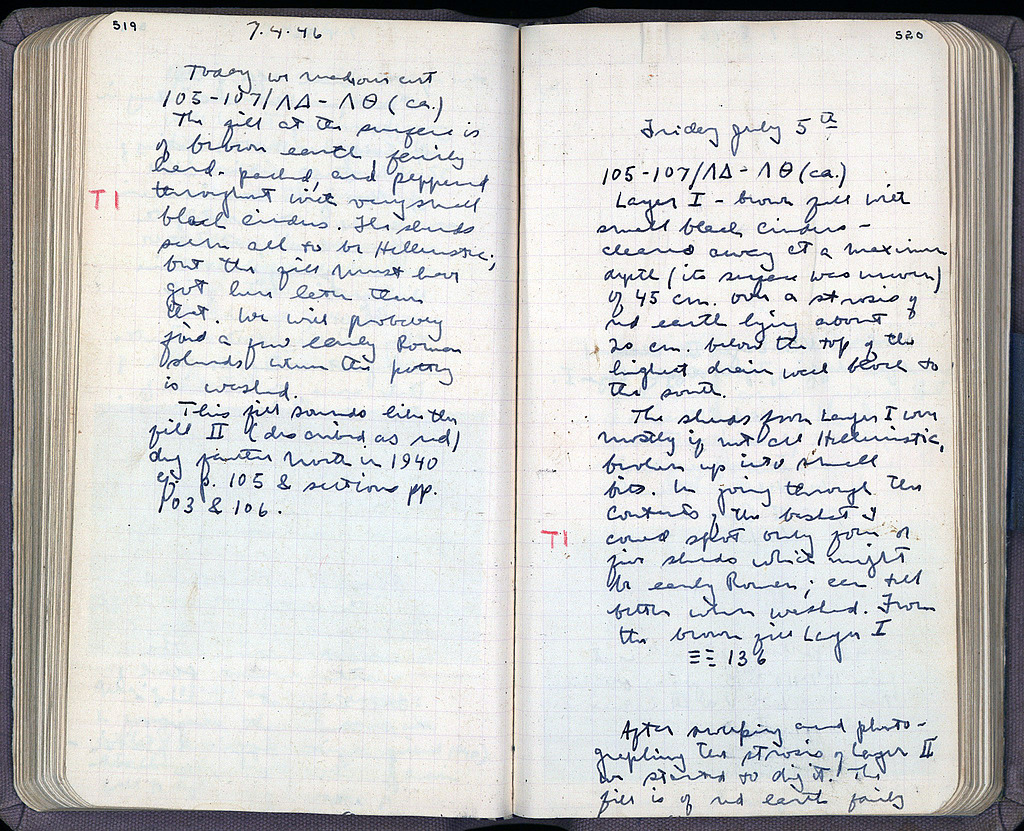 519
7.4.46
Today we made our cut
105-107/ΛΔ-ΛΘ (ca.)
The fill at the surface is
of brown earth, fairly
hard-packed, and peppered
T1
throughout with very small
black cinders. The sherds
seem all to be Hellenistic;
but the fill must have
got here later than
that. We will probably
find a few early Roman
sherds when the pottery
is washed.
This fill sounds like the
fill II (described as red)
dug farther north in 1940
cf. p. 105 & sections pp.
103 & 106.
520
Friday July 5th
105-107/ΛΔ-ΛΘ (ca.)
Layer I - brown fill with
small black cinders -
cleared away at a maximum
depth (its surface was uneven)
of 45 cm. over a strosis of
red earth lying about
20 cm. below the top of the
highest drain wall block to
the south.
The sherds from Layer I were
mostly if not all Hellenistic,
broken up into small
bits. In going through the
contents of the basket I
T1
could spot only four or
five sherds which might
be early Roman; can tell
better when washed. From
the brown fill Layer I
ΞΞ 136
After sweeping and photo-
graphing the strosis of Layer II
we started to dig it. The
fill is of red earth fairly